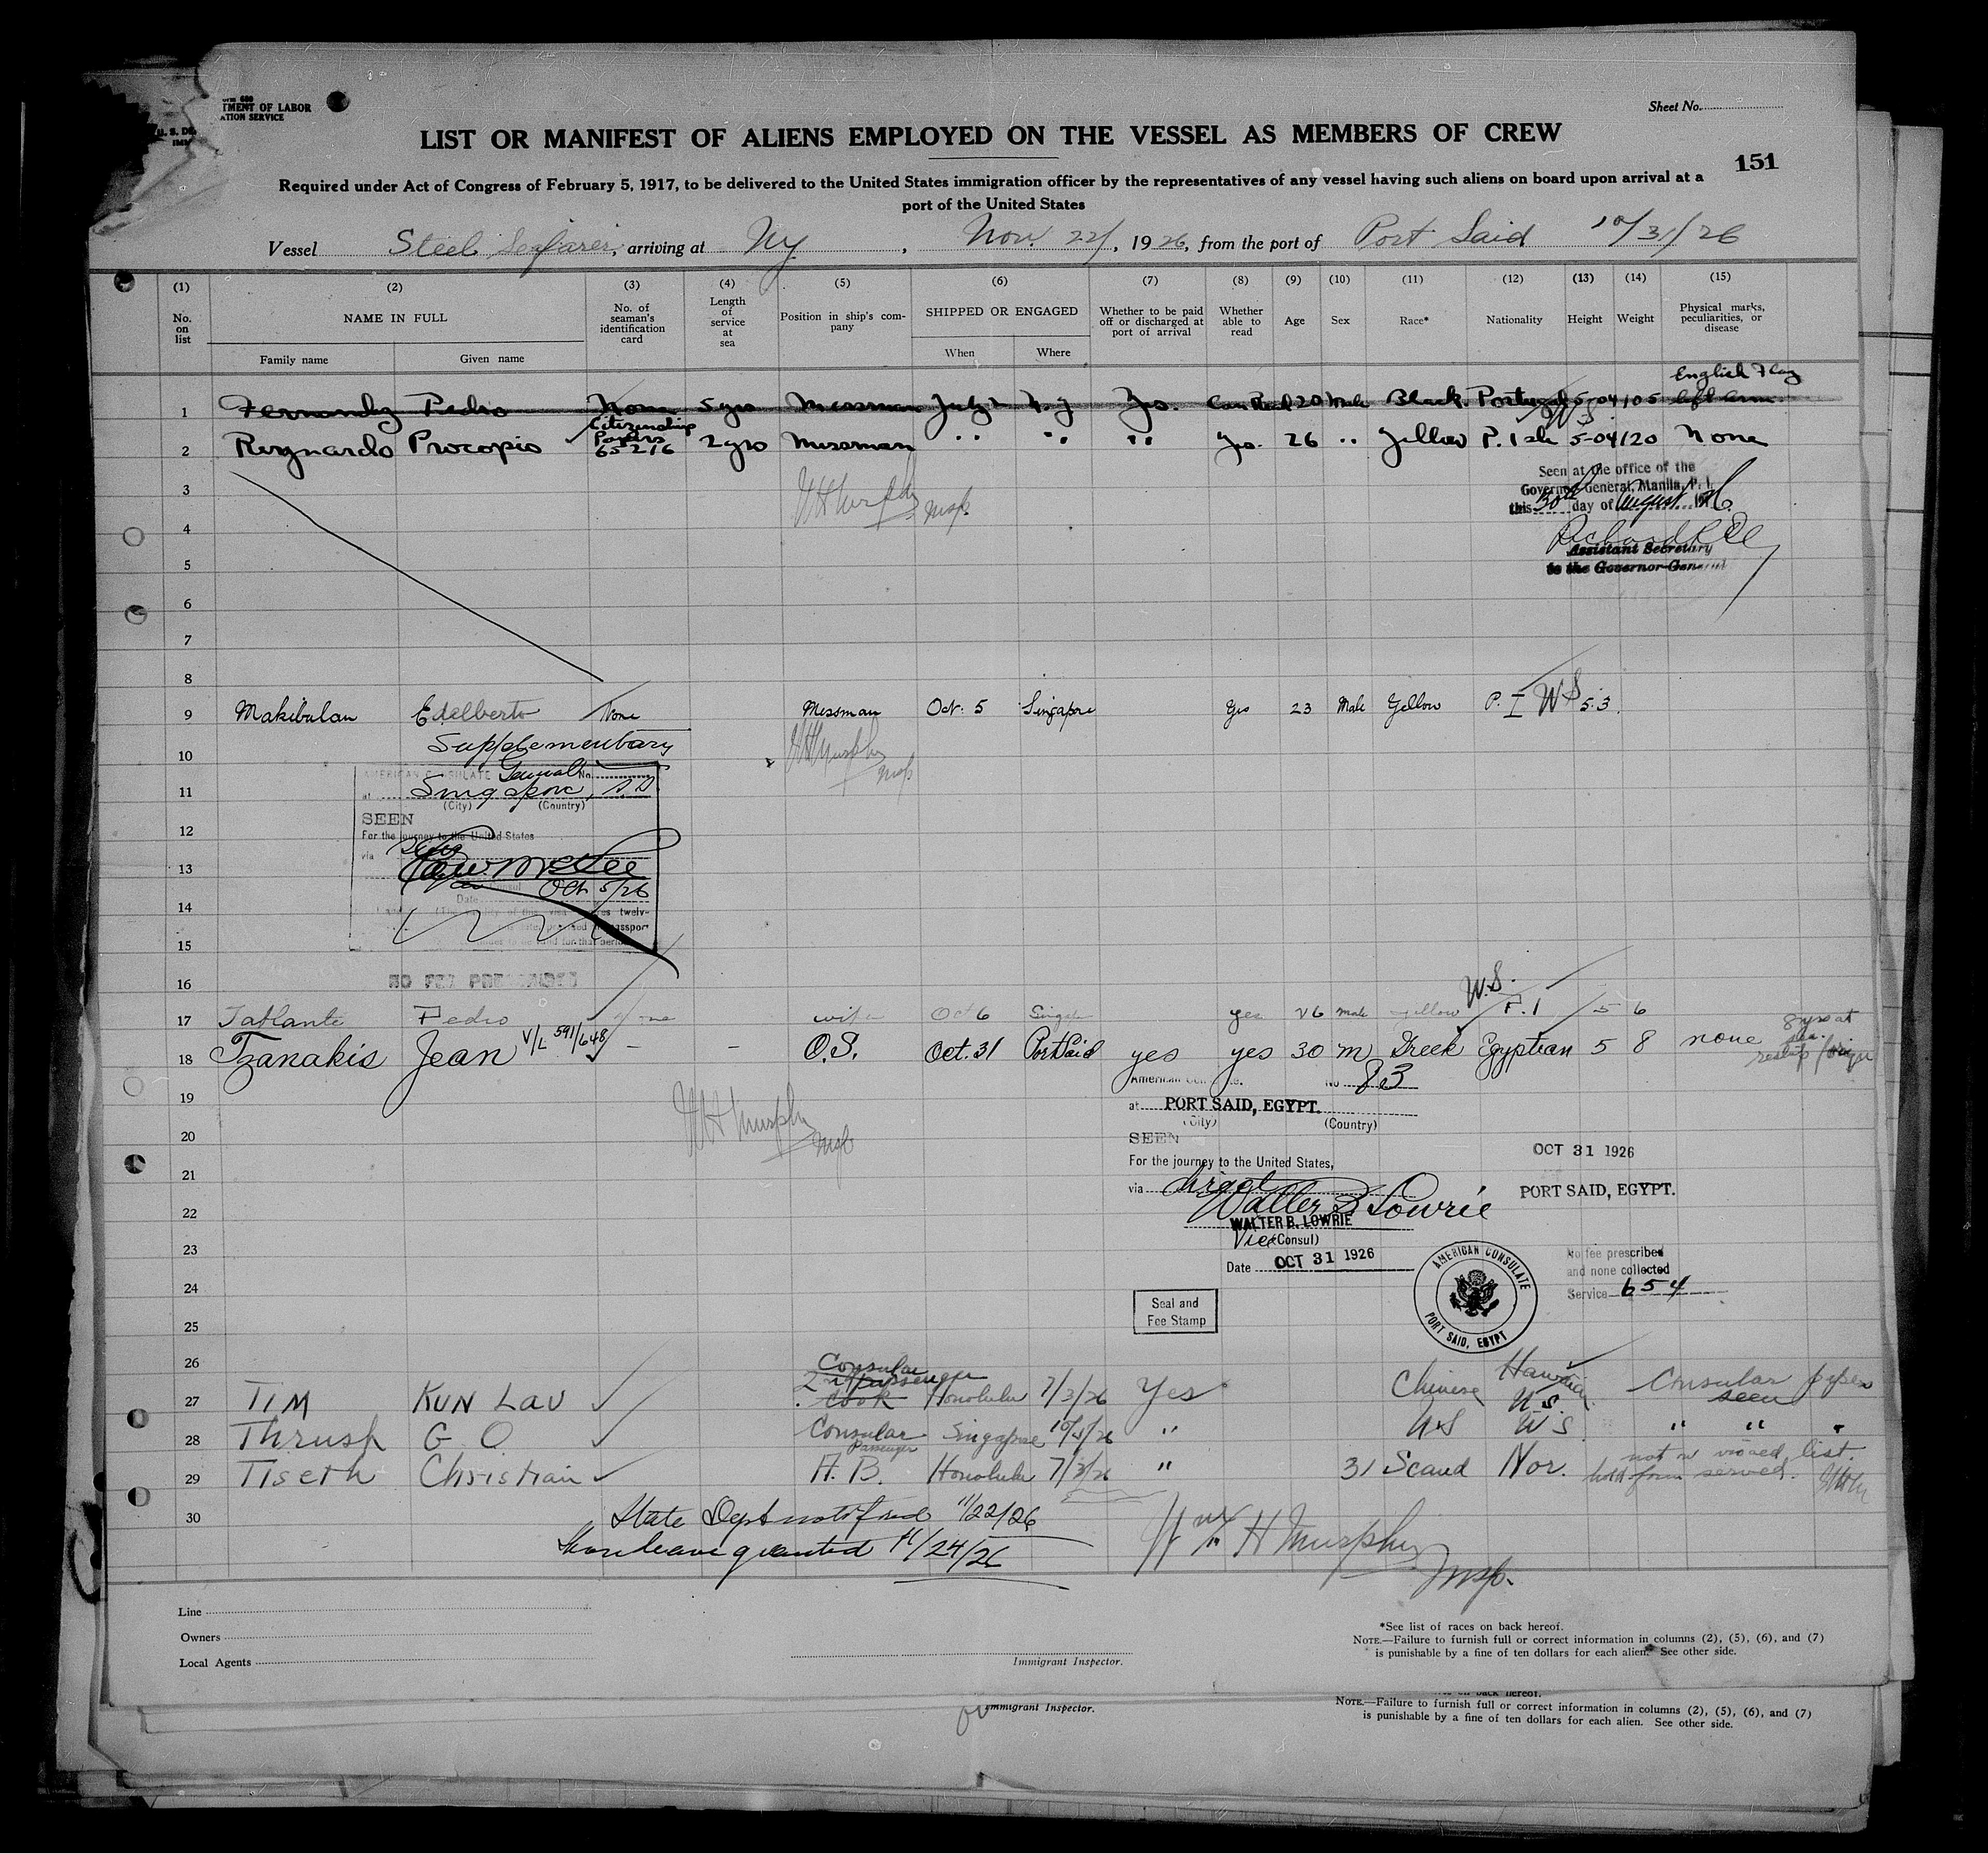 TMENT OF LABOR
ATION SERVICE
U. S. DE
Sheet No.
LIST OR MANIFEST OF ALIENS EMPLOYED ON THE VESSEL AS MEMBERS OF CREW
151
Required under Act of Congress of February 5, 1917, to be delivered to the United States immigration officer by the representatives of any vessel having such aliens on board upon arrival at a
port of the United States
Vessel Steel Seafarer, arriving at Ny, Nov. 22, 1926, from the port of Port Said 10/31/26
(1) (2) (3) (4) (5) (6) (7) (8) (9) (10) (11) (12) (13) (14) (15)
No. on list
NAME IN FULL
Family name
Given name
No. of seaman's identification card
Length of service at sea
Position in ship's company
SHIPPED OR ENGAGED
When
Where
Whether to be paid off or discharged at port of arrival
Whether able to read
Age
Sex
Race*
Nationality
Height
Weight
Physical marks, peculiarities, or disease
English Flag
1 Fernandez Pedro None 5 yrs Messman July N.Y Yes. Can Read 20 Male Black. Portugal 5-04 105 left arm
Citizenship
Papers
2 Reynardo Procopio 65216 2 yrs Messman " " " Yes. 26 " Yellow P. Isle 5-04 120 None
3
W H Murphy Insp.
Seen at the office of the
Governor General, Manila, P. I.
this 30th day of August 1926
Assistant Secretary
to the Governor-General
4
5
6
7
8
9 Makibulan Edelberto None Messman Oct. 5 Singapore Yes 23 Male Yellow P. I US 5.3
Supplementary
10
W H Murphy
Insp
AMERICAN CONSULATE General No.
11
at Singapore, S.S.
(City) (Country)
SEEN
12
For the journey to the United States
via
13
Consul Oct 5/26
Date
14
15
16
NO FEE PRESCRIBED
U.S.
17 Taflante Pedro None wiper Oct 6 Singapore yes 26 male yellow P.I 5 6
18 Tzanakis Jean V/L 591/648 - - O.S. Oct. 31 Port Said yes yes 30 m Greek Egyptian 5 8 none
8 yrs at sea
reship foreign
19
W H Murphy
Insp
20
21
22
23
24
25
26
American Consulate. No 83
at PORT SAID, EGYPT.
(City) (Country)
SEEN
For the journey to the United States,
via direct
Walter B Lowrie
WALTER B. LOWRIE
Vice (Consul)
Date OCT 31 1926
OCT 31 1926
PORT SAID, EGYPT.
AMERICAN CONSULATE
PORT SAID, EGYPT
No fee prescribed
and none collected
Service 654
Seal and
Fee Stamp
Consular
passenger
27 TIM KUN LAU 2nd cook Honolulu 7/3/26 Yes Chinese Hawaiian U.S. Consular papers seen
28 Thrush G O Consular Passenger Singapore US US " " "
29 Tiseth Christian A. B. Honolulu 7/3/26 " 31 Scand Nor. not on visaed list.
served.
30
State Dept notified 11/22/26
Shore leave granted 11/24/26
Wm H Murphy
Insp.
Line
Owners
Local Agents
Immigrant Inspector.
*See list of races on back hereof.
NOTE.—Failure to furnish full or correct information in columns (2), (5), (6), and (7)
is punishable by a fine of ten dollars for each alien. See other side.
Immigrant Inspector.
on back hereof.
NOTE.—Failure to furnish full or correct information in columns (2), (5), (6), and (7)
is punishable by a fine of ten dollars for each alien. See other side.